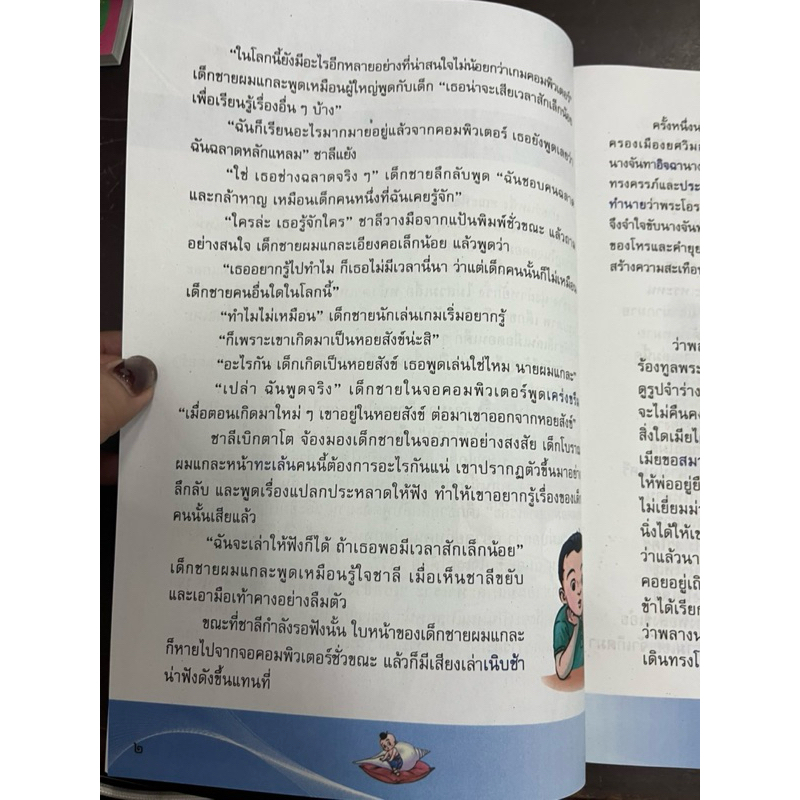 “ในโลกนี้ยังมีอะไรอีกหลายอย่างที่น่าสนใจไม่น้อยกว่าเกมคอมพิวเตอร์”
เด็กชายผมแกละพูดเหมือนผู้ใหญ่พูดกับเด็ก “เธอน่าจะเสียเวลาสักเล็กน้อย
เพื่อเรียนรู้เรื่องอื่น ๆ บ้าง”
“ฉันก็เรียนอะไรมากมายอยู่แล้วจากคอมพิวเตอร์ เธอยังพูดเลยว่า
ฉันฉลาดหลักแหลม” ชาลีแย้ง
“ใช่ เธอช่างฉลาดจริง ๆ” เด็กชายลึกลับพูด “ฉันชอบคนฉลาด
และกล้าหาญ เหมือนเด็กคนหนึ่งที่ฉันเคยรู้จัก”
“ใครล่ะ เธอรู้จักใคร” ชาลีวางมือจากแป้นพิมพ์ชั่วขณะ แล้วถาม
อย่างสนใจ เด็กชายผมแกละเอียงคอเล็กน้อย แล้วพูดว่า
“เธออยากรู้ไปทำไม ก็เธอไม่มีเวลานี่นา ว่าแต่เด็กคนนั้นก็ไม่เหมือน
เด็กชายคนอื่นใดในโลกนี้”
“ทำไมไม่เหมือน” เด็กชายนักเล่นเกมเริ่มอยากรู้
“ก็เพราะเขาเกิดมาเป็นหอยสังข์น่ะสิ”
“อะไรกัน เด็กเกิดเป็นหอยสังข์ เธอพูดเล่นใช่ไหม นายผมแกละ”
“เปล่า ฉันพูดจริง” เด็กชายในจอคอมพิวเตอร์พูดเคร่งขรึม
“เมื่อตอนเกิดมาใหม่ ๆ เขาอยู่ในหอยสังข์ ต่อมาเขาออกจากหอยสังข์”
ชาลีเบิกตาโต จ้องมองเด็กชายในจอภาพอย่างสงสัย เด็กโบราณ
ผมแกละหน้าทะเล้นคนนี้ต้องการอะไรกันแน่ เขาปรากฏตัวขึ้นมาอย่าง
ลึกลับ และพูดเรื่องแปลกประหลาดให้ฟัง ทำให้เขาอยากรู้เรื่องของเด็ก
คนนั้นเสียแล้ว
“ฉันจะเล่าให้ฟังก็ได้ ถ้าเธอพอมีเวลาสักเล็กน้อย”
เด็กชายผมแกละพูดเหมือนรู้ใจชาลี เมื่อเห็นชาลีขยับ
และเอามือเท้าคางอย่างลืมตัว
ขณะที่ชาลีกำลังรอฟังนั้น ใบหน้าของเด็กชายผมแกละ
ก็หายไปจากจอคอมพิวเตอร์ชั่วขณะ แล้วก็มีเสียงเล่าเนิบช้า
น่าฟังดังขึ้นแทนที่
๒
ครั้งหนึ่งน
ครองเมืองยศวิม
นางจันทาอิจฉานาง
ทรงครรภ์และประ
ทำนายว่าพระโอร
จึงจำใจขับนางจันท
ของโหรและคำยุย
สร้างความสะเทือน
ว่าพล
ร้องทูลพระ
ดูรูปจำร่าง
จะไม่คืนคง
สิ่งใดเมียไ
เมียขอสมา
ให้พ่ออยู่ยื
ไม่เยี่ยมม่
นิ่งได้ให้เข
ว่าแล้วนา
คอยอยู่เถิ
ข้าได้เรีย
ว่าพลางน
เดินทรงโ